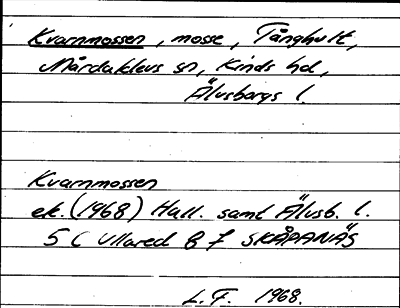 Kvarnmossen, mosse, Tånghult,
Mårdaklevs sn, Kinds hd,
Älvsborgs l.
Kvarnmossen
ek. (1968) Hall. samt Älvsb. l.
5 C Ullared 8 f SKÅPANÄS
L.F. 1968.